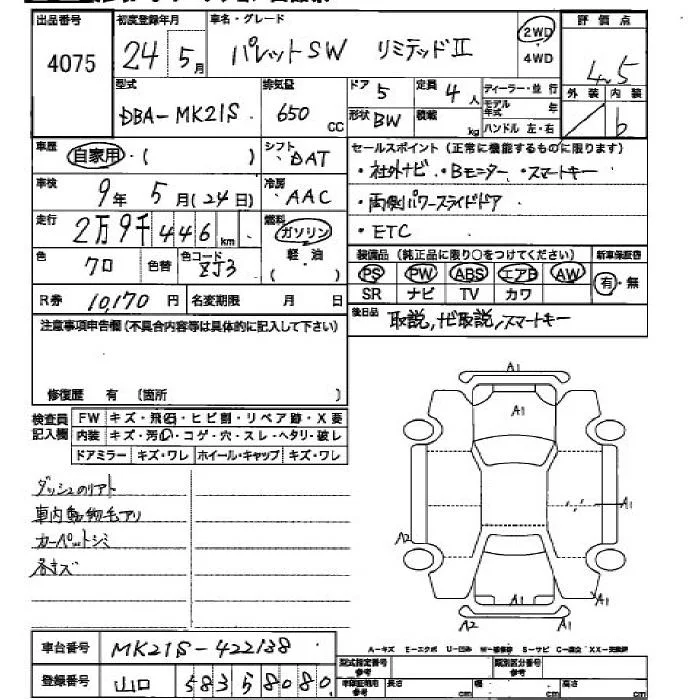 出品番号 初度登録年月 車名・グレード 評価点
4075 24年5月 パレットSW リミテッドⅡ 2WD・4WD 4.5
型式 排気量 ドア 5 定員 4人 ディーラー・並行 外装 内装
DBA-MK21S 650cc 形状 BW 積載 kg モデル年式 年 b
ハンドル 左・右
車歴 自家用・( ) シフト DAT セールスポイント(正常に機能するものに限ります)
車検 9年5月(24日) 冷房 AAC ・社外ナビ ・Bモニター ・スマートキー
・両側パワースライドドア
走行 2万9千446km 燃料 ガソリン ・ETC
軽・油
( )
色 クロ 色替 色コード ZJ3 装備品(純正品に限り○をつけてください) 新車保証書
PS PW ABS エアB AW 有・無
SR ナビ TV カワ
R券 10,170円 名変期限 月 日
後日品 取説,ナビ取説,スマートキー
注意事項申告欄(不具合内容等は具体的に記入して下さい)
修復歴 有 〔箇所 〕
検査員記入欄 FW キズ・飛石・ヒビ割・リペア跡・X要
内装 キズ・汚れ・コゲ・穴・スレ・ヘタリ・破レ
ドアミラー キズ・ワレ ホイール・キャップ キズ・ワレ
ダッシュのりアト
車内動物毛アリ
カーペットシミ
各キズ
A1
A1
A1
A2
A1
A1
A2 A1
車台番号 MK21S-422138
登録番号 山口 583 58080
A-キズ E-エクボ U-凹み W-補修跡 S-サビ C-腐食 XX-交換跡
型式指定番号 類別区分番号
参考 長さ cm 幅 cm 高さ cm